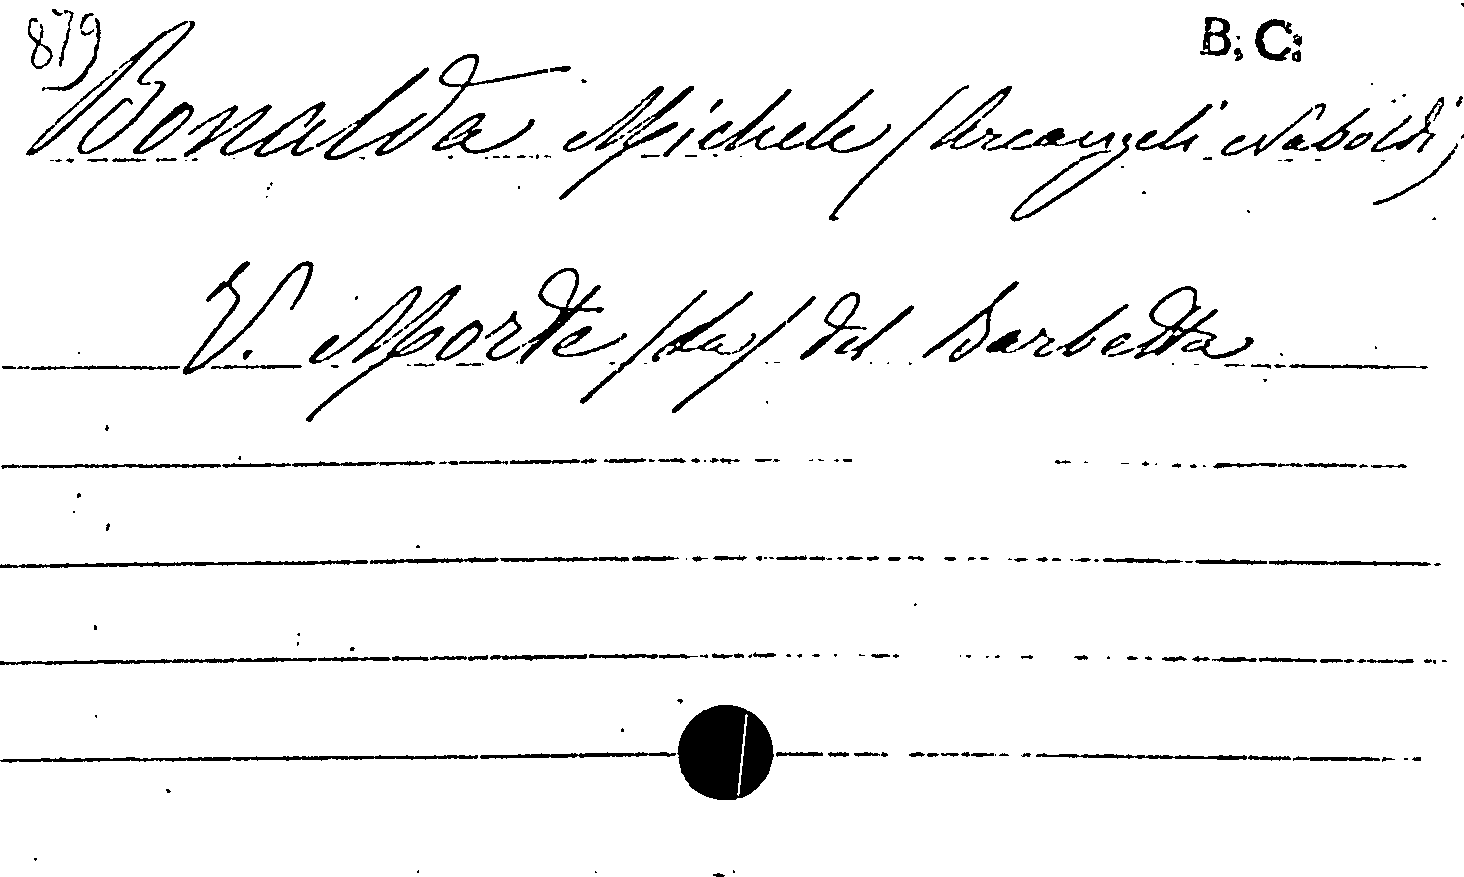 879
B. C.
Bonalda Michele (Arcangeli Naboldi)
V. Morte (La) del Barbetta